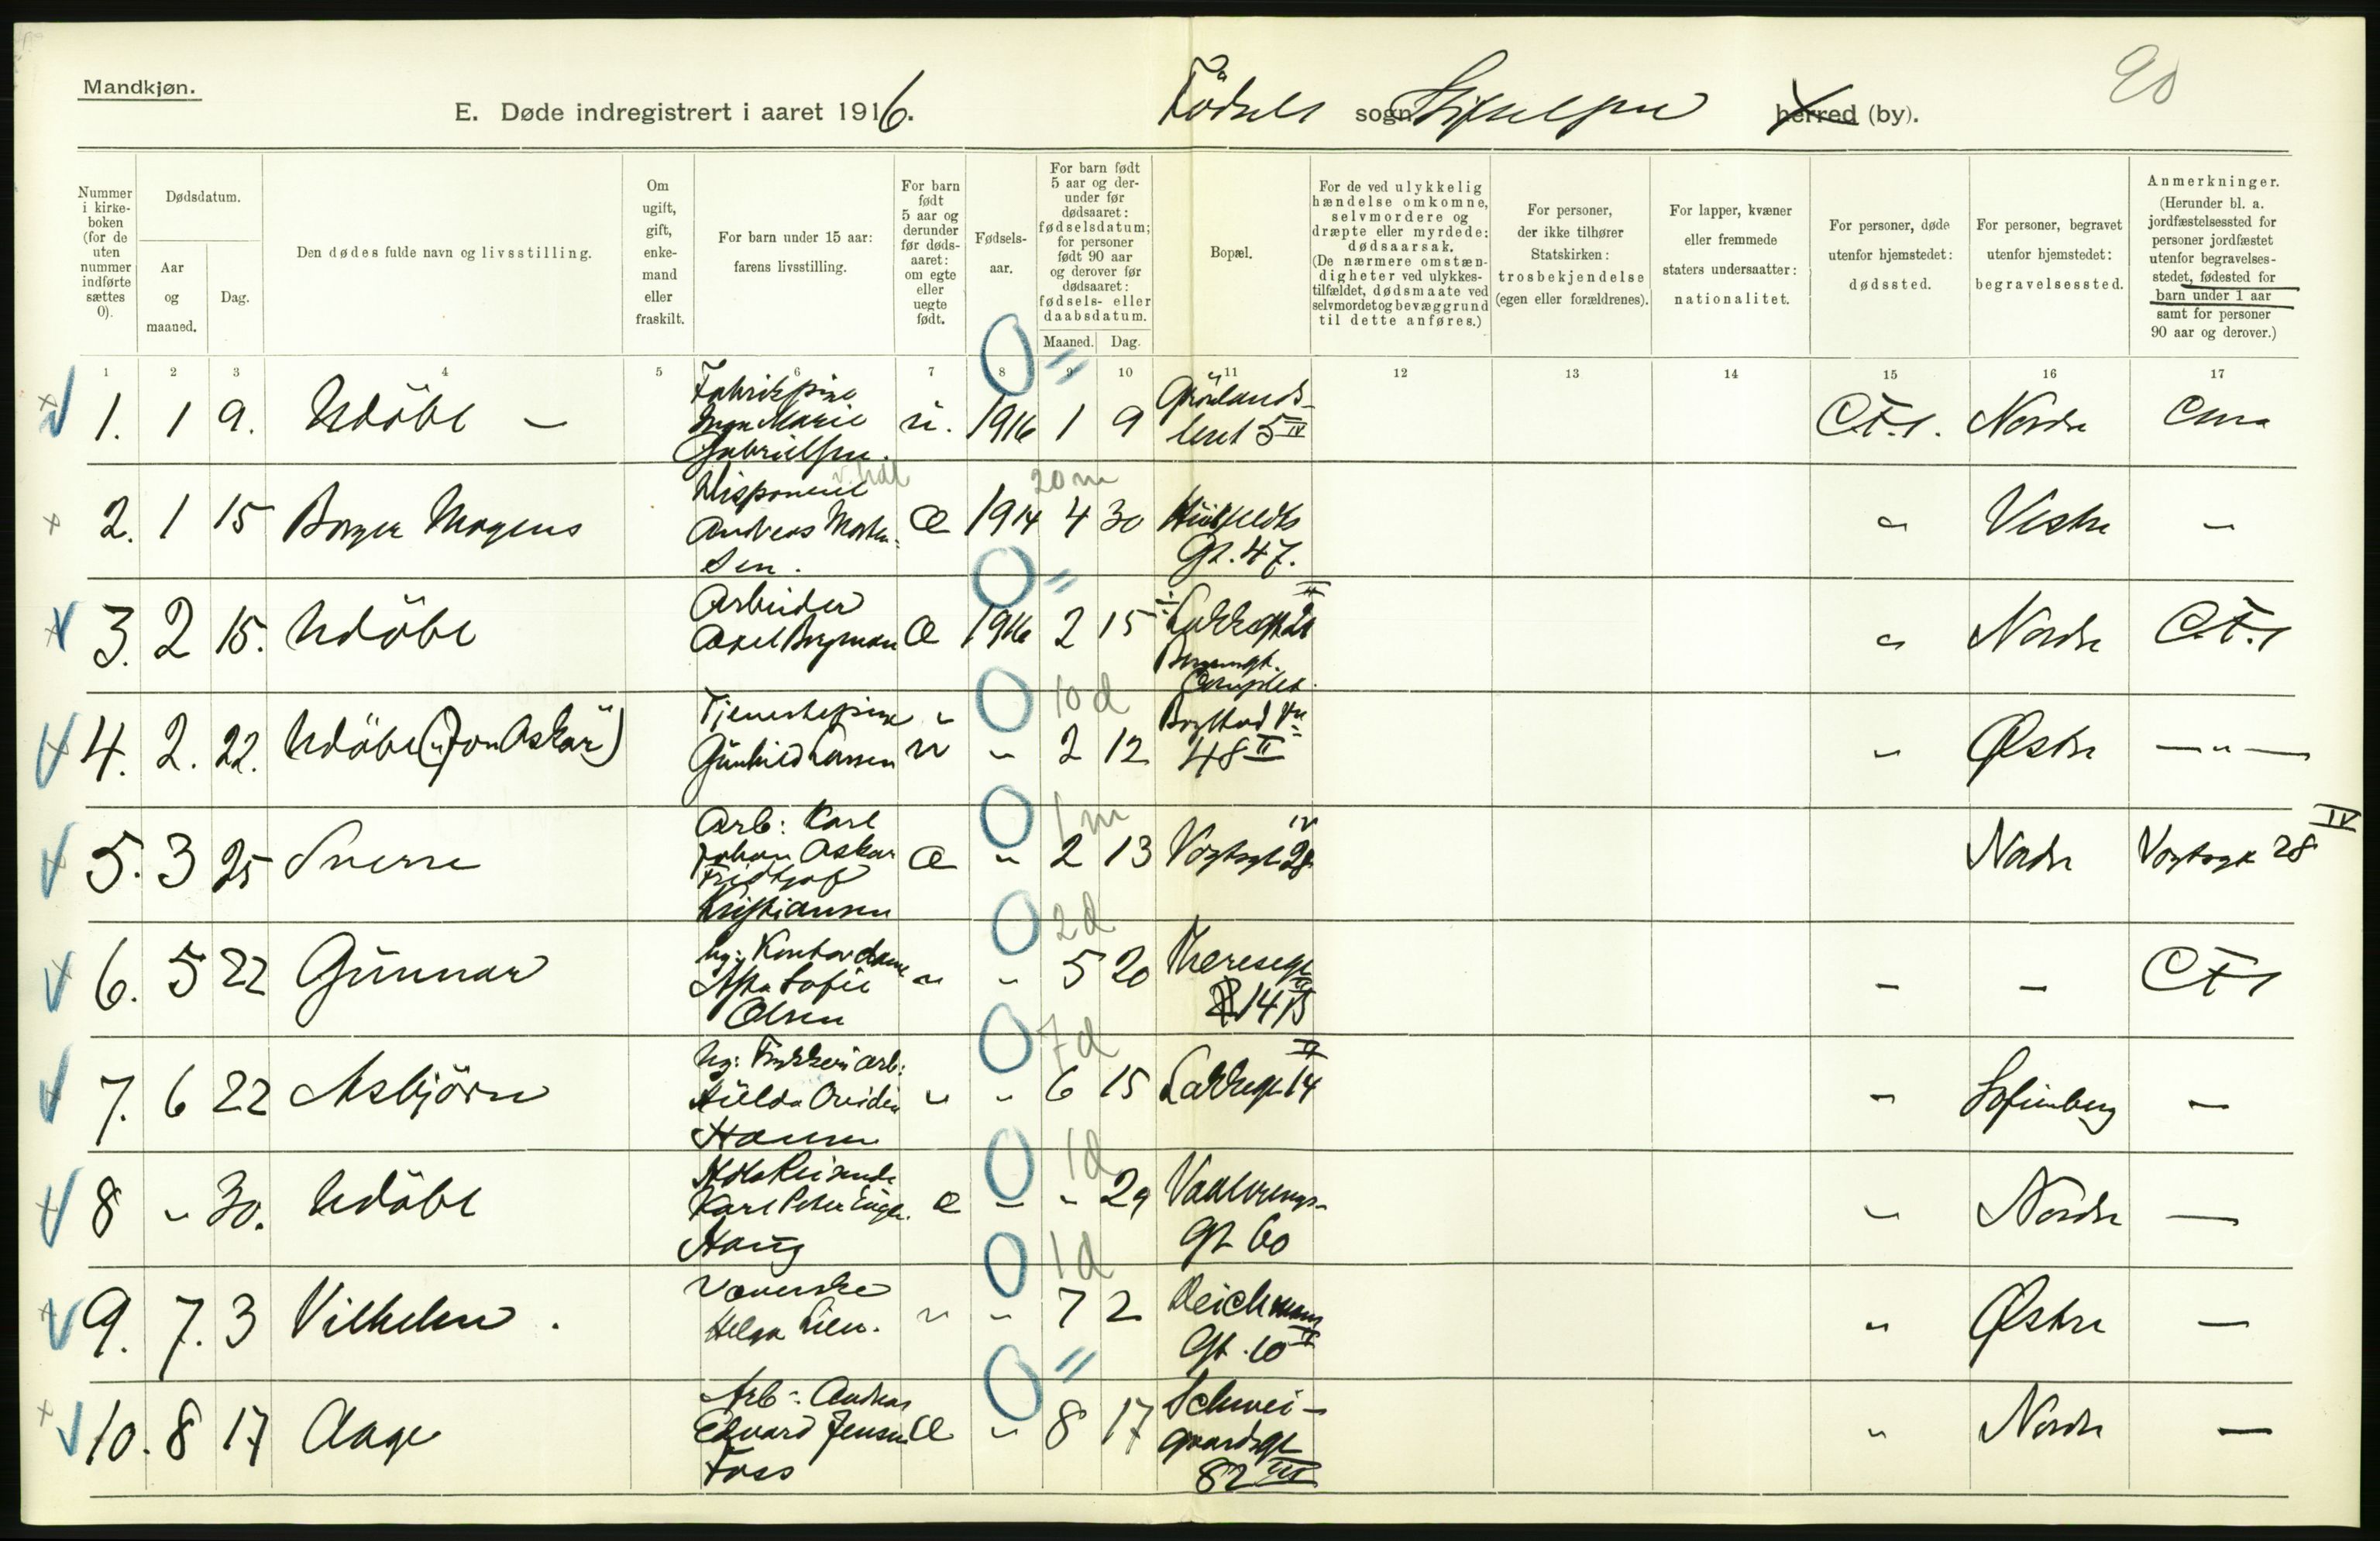 Mandkjøn.
90
E. Døde indregistrert i aaret 1916.
Fødsels sogn Stiftelsen herred (by).
Nummer i kirke-boken (for de uten nummer indførte sættes 0).
Dødsdatum.
Aar og maaned.
Dag.
Den dødes fulde navn og livsstilling.
Om ugift, gift, enke-mand eller fraskilt.
For barn under 15 aar: farens livsstilling.
For barn født 5 aar og derunder før døds-aaret: om egte eller uegte født.
Fødsels-aar.
For barn født 5 aar og der-under før dødsaaret: fødselsdatum; for personer født 90 aar og derover før dødsaaret: fødsels- eller daabsdatum.
Maaned. Dag.
Bopæl.
For de ved ulykkelig hændelse omkomne, selvmordere og dræpte eller myrdede: dødsaarsak. (De nærmere omstæn-digheter ved ulykkes-tilfældet, dødsmaate ved selvmordet og bevæggrund til dette anføres.)
For personer, der ikke tilhører Statskirken: trosbekjendelse (egen eller forældrenes).
For lapper, kvæner eller fremmede staters undersaatter: nationalitet.
For personer, døde utenfor hjemstedet: dødssted.
For personer, begravet utenfor hjemstedet: begravelsessted.
Anmerkninger. (Herunder bl. a. jordfæstelsessted for personer jordfæstet utenfor begravelses-stedet, fødested for barn under 1 aar samt for personer 90 aar og derover.)
1 2 3 4 5 6 7 8 9 10 11 12 13 14 15 16 17
1. 1 9. Udöbt — Fabrikpike Inga Marie Gabrielsen. u. 1916 1 9 Grönlands-leret 5 IV C.F.S. Nordre
2. 1 15 Borger Mogens Disponent Andreas Morten-sen. Æ 1914 20 m 4 30 Huitfeldts Gt. 47. " Vestre —
3. 2 15. Udöbt Arbeider Axel Bergman Æ 1916 2 15 Lakkegt. II " Nordre C.F.S
4. 2. 22. Udöbt ("Jon Askar") Tjenestepike Gunhild Larsen u " 10 d 2 12 Bogstad Vn 48 II " Østre — " —
5. 3 25 Sverre Arb: Karl Johan Oskar Fridtjof Kristiansen Æ " 1 m 2 13 Vogtsgt 28 IV Nordre Vogtsgt 28 IV
6. 5 22 Gunnar Ug: Kontordame Asta Sofie Olsen u " 2 d 5 20 Theresegt 14 B — — C F S
7. 6 22 Asbjörn Ug: Trykkeriarb: Hulda Ovidia Hansen " " 7 d 6 15 Lakkegt 14 — Sofienberg —
8 " 30. Udöbt Karl Peter Haug e — 1 d " 29 Vaalerengs-Gt 60 " Nordre —
9. 7. 3 Vilhelm. Væverske Helga Lien. " " 1 d 7 2 Deichmans Gt. 10 " Østre —
10. 8 17 Aage Arb: Andreas Edvard Jensen Foss Æ " 8 17 Schwei-gaardsgt 82 III " Nordre —